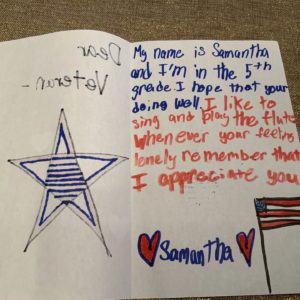 Dear
Veteran-
My name is Samantha
and I'm in the 5th
grade I hope that your
doing well. I like to
sing and play the flute
whenever your feeling
lonely remember that
I appreciate you
Samantha